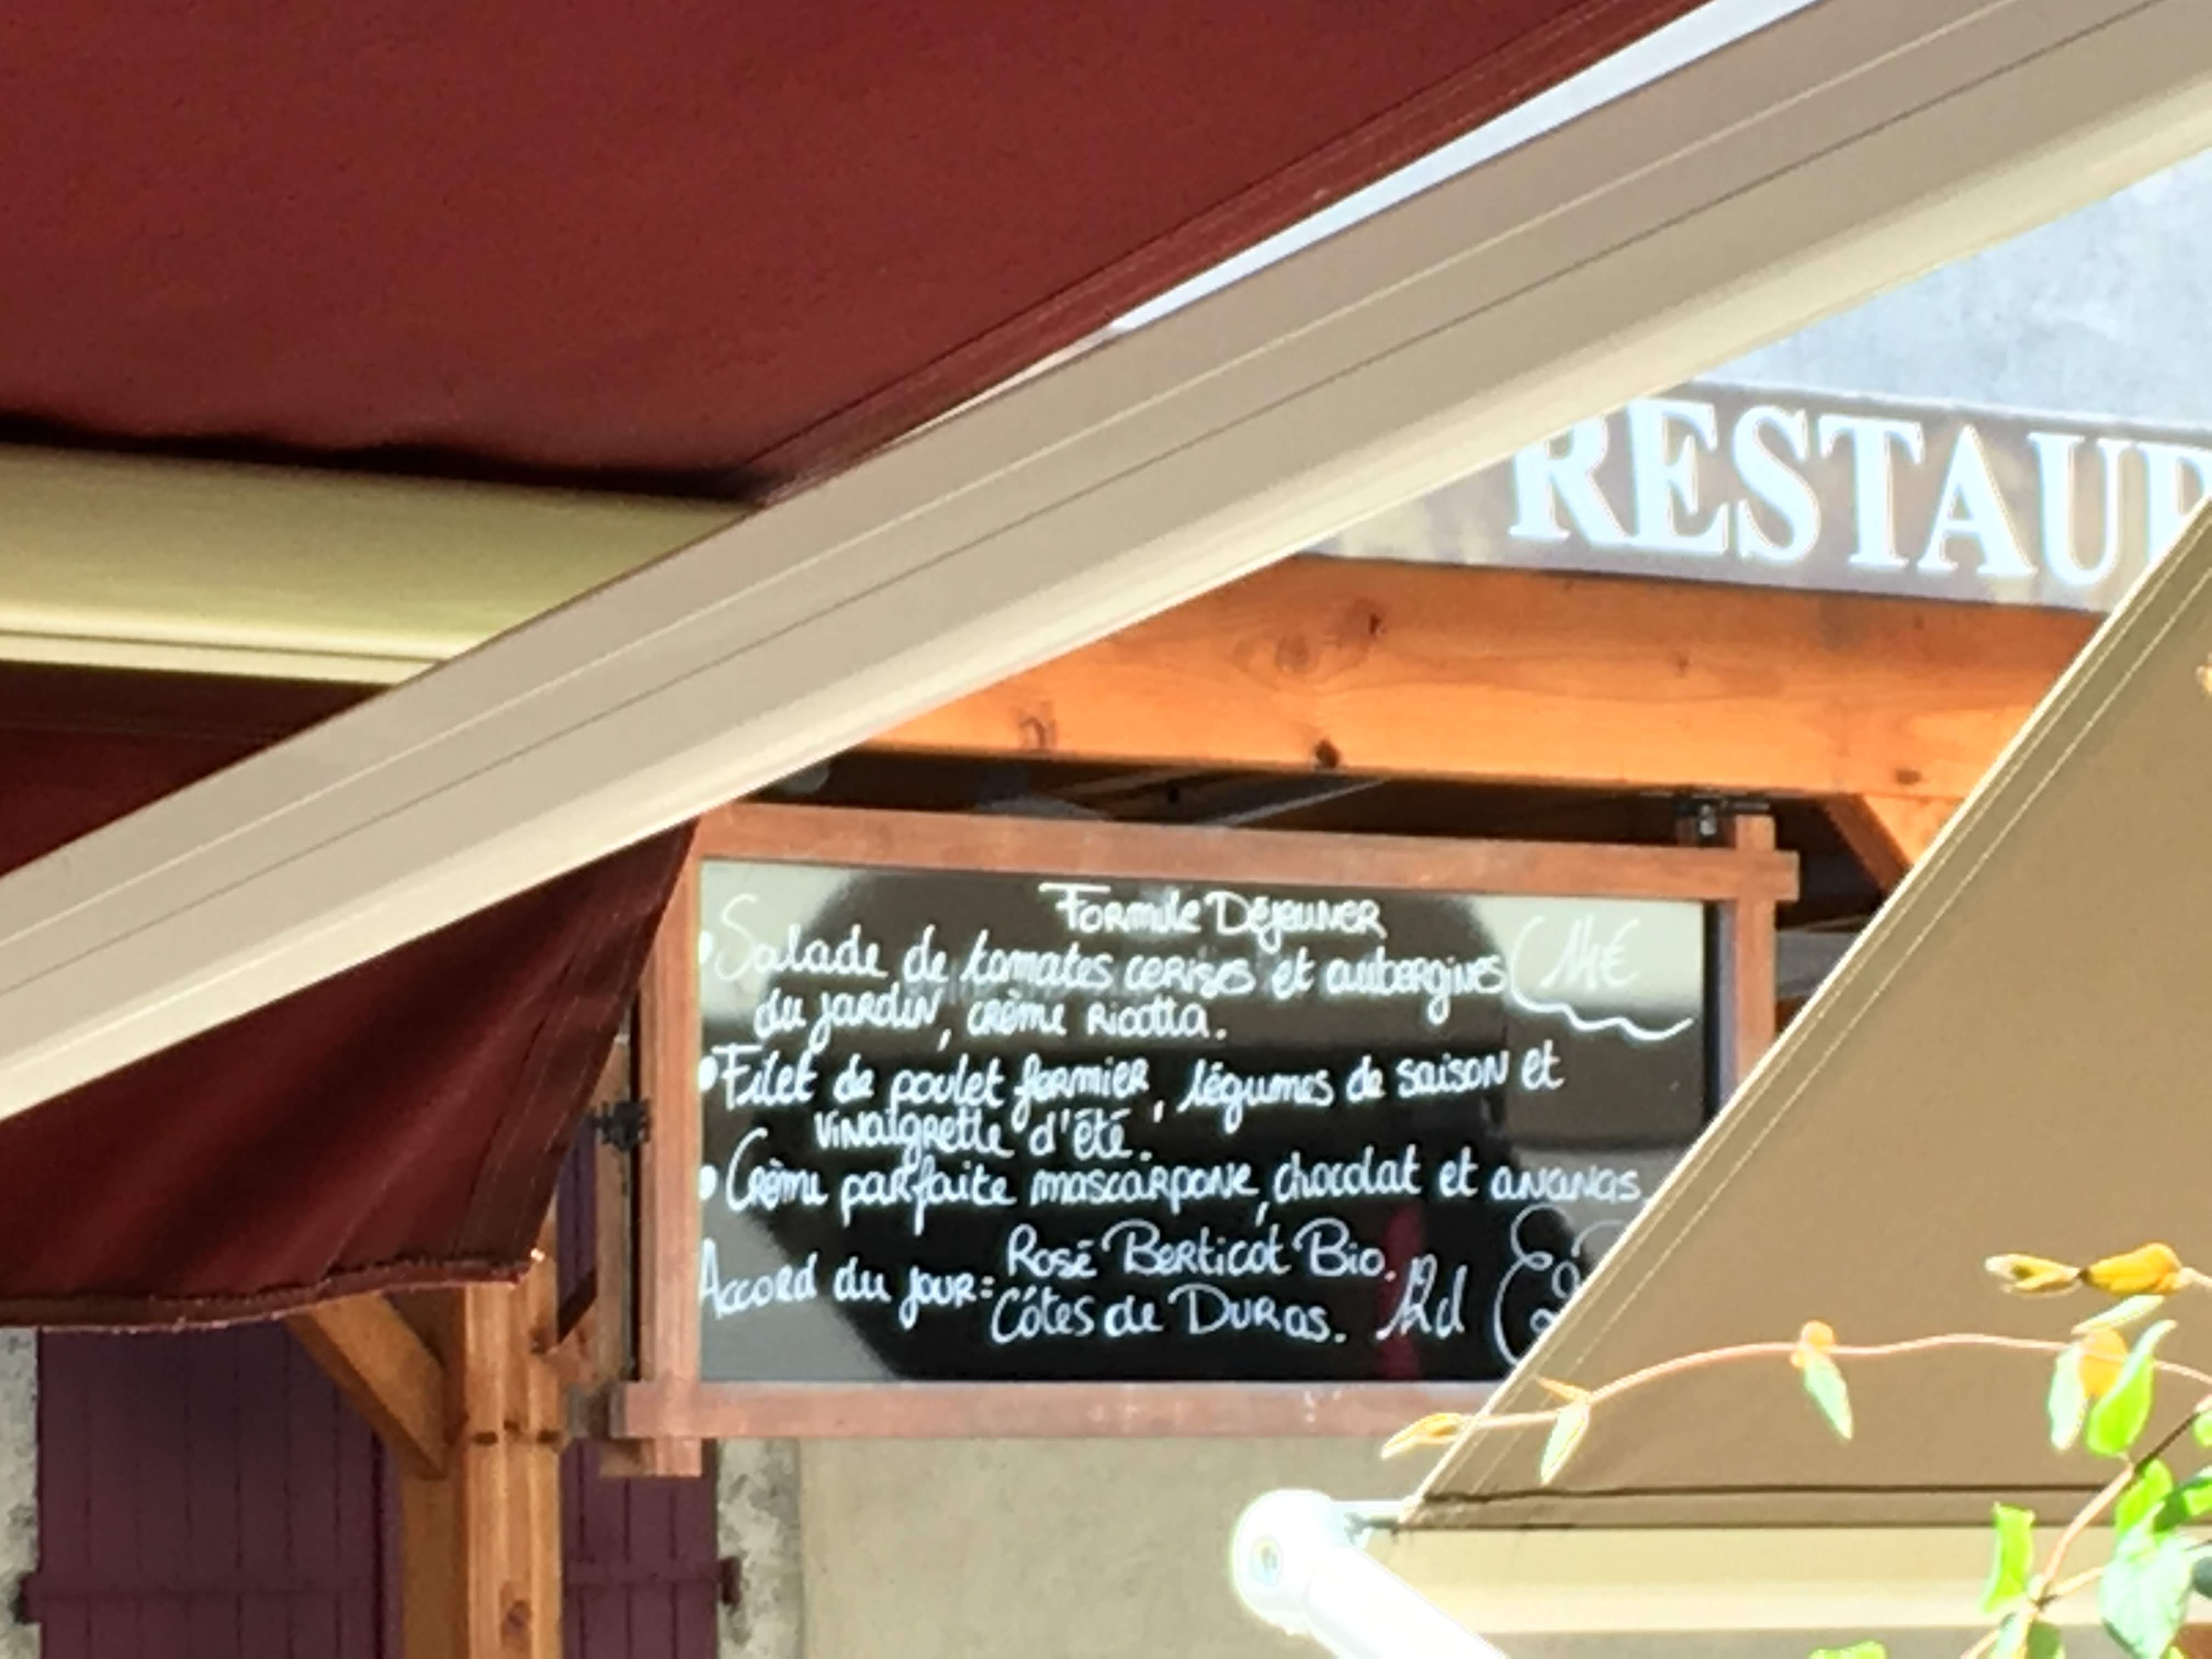 RESTAUR
Formule Déjeuner
• Salade de tomates cerises et aubergines 14€
du jardin, crème ricotta.
• Filet de poulet fermier, légumes de saison et
vinaigrette d'été.
• Crème parfaite mascarpone, chocolat et ananas.
Accord du jour: Rosé Berticot Bio.
Côtes de Duras. 12cl